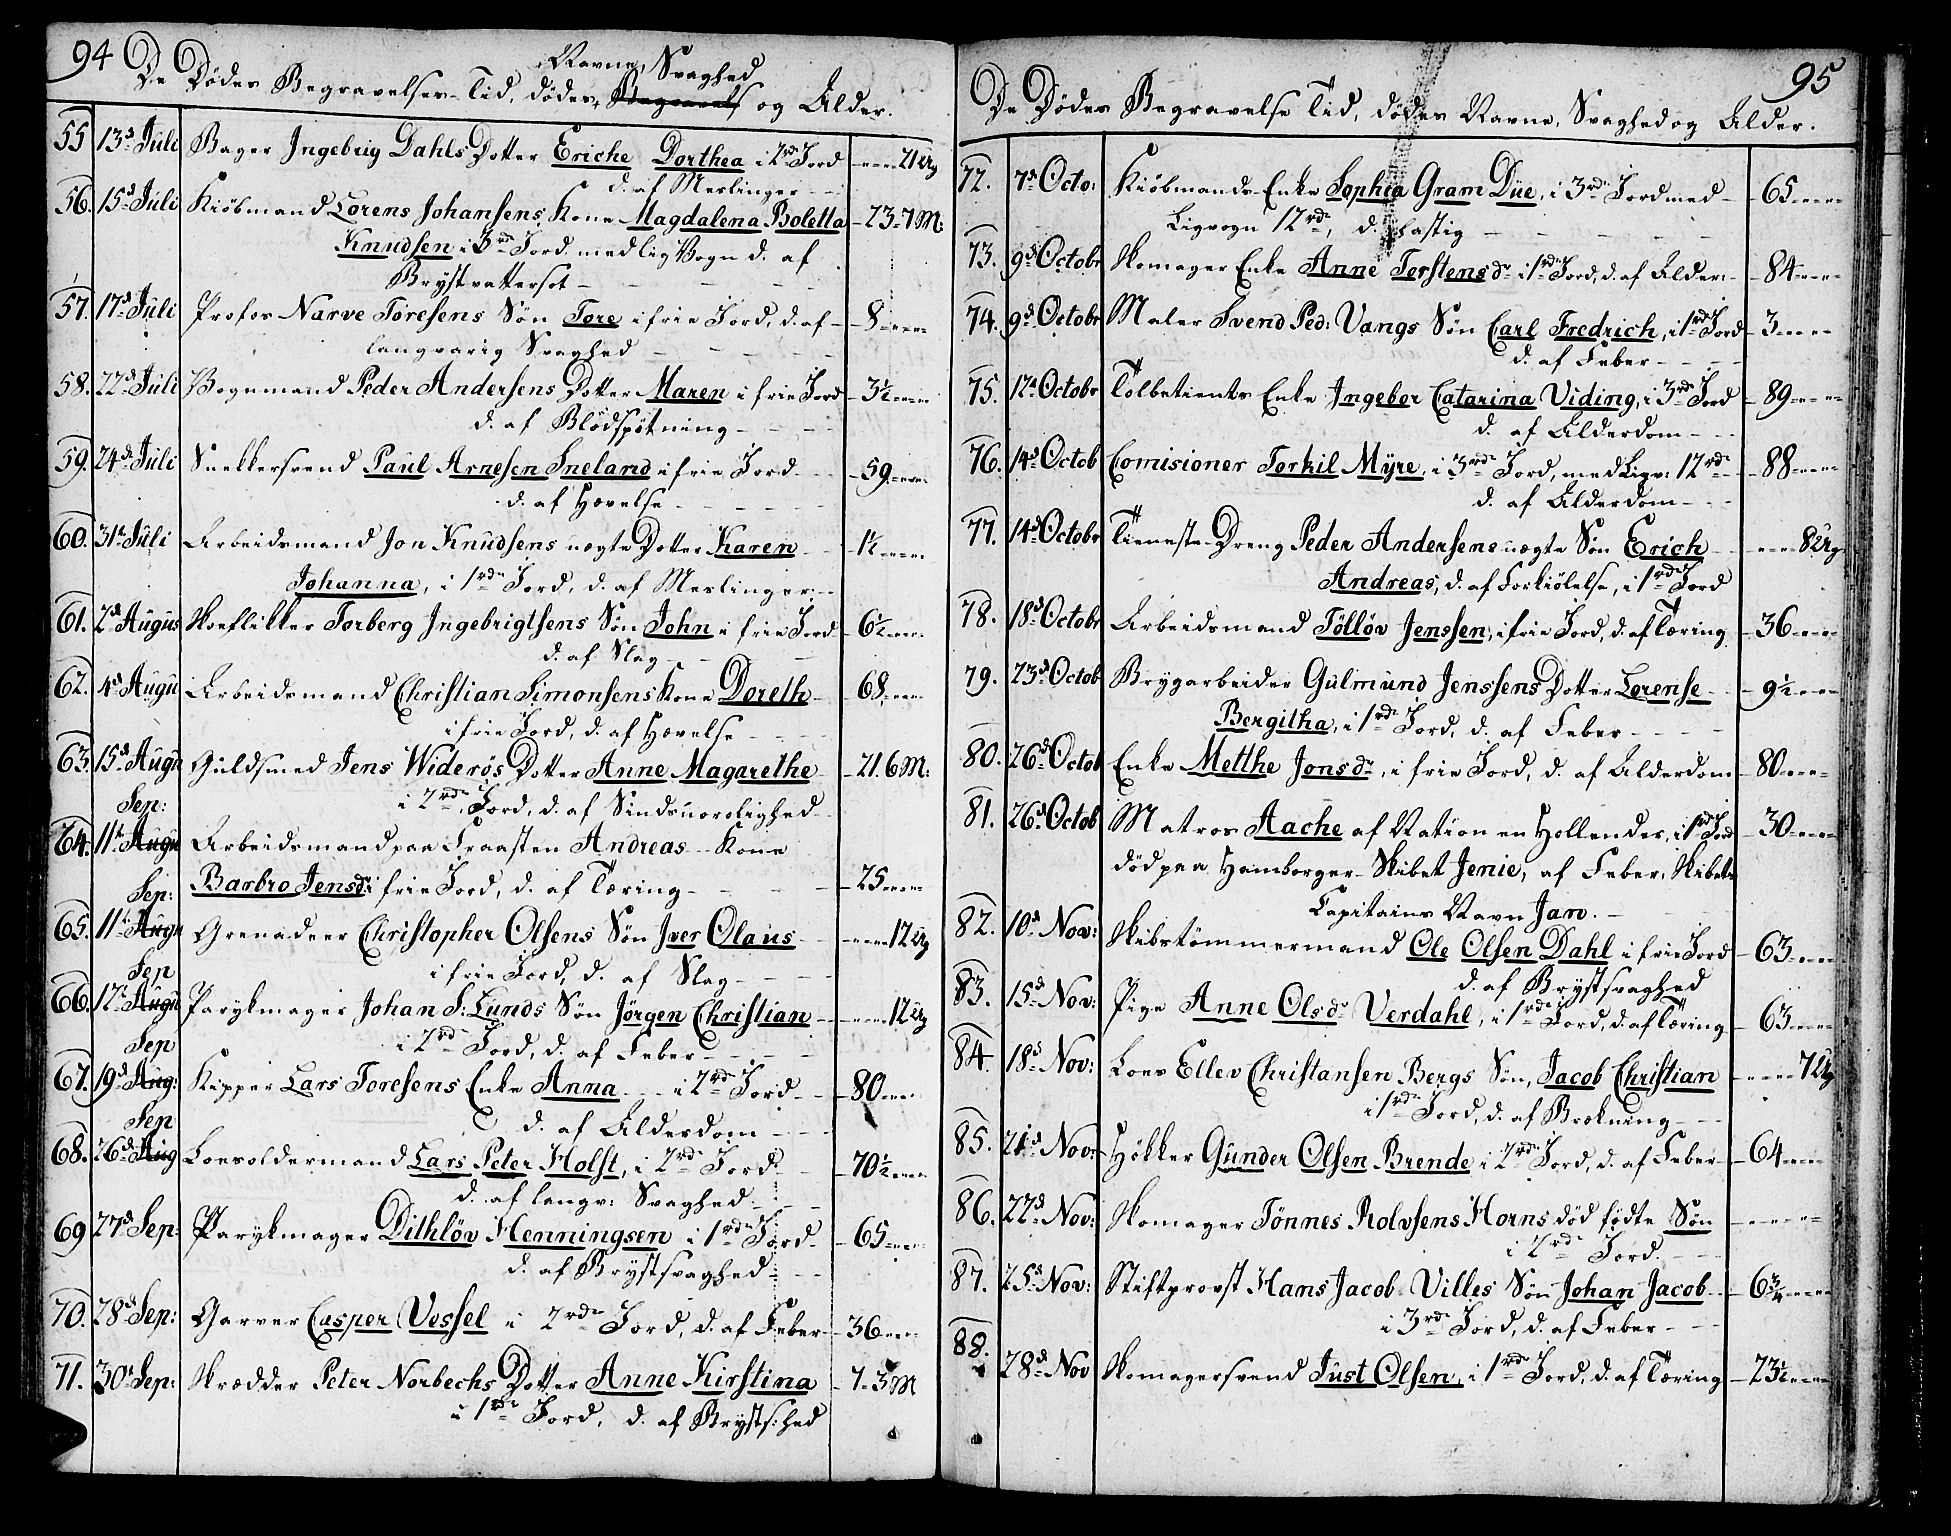 94
Navne, Svaghed
De Dødes Begravelses-Tid, dødes, Begravels og Alder.
55 13d Juli Bager Ingebrig Dahls Dotter Eriche Dorthea i 2rd Jord ---- 21 Ug
d. af Meslinger --
56. 15d Juli Kiøbmand Lorens Johansens Kone Magdalena Boletta - 23-7 M:
Knudsen i 3rd Jord med lig Vogn d. af
Brystvattersot -
57. 17d Juli Profos Narve Toresens Søn Tore i frie Jord, d. af - 8 ----
langvarig Svaghed
58. 22d Juli Vognmand Peder Andersens Dotter Maren i frie Jord - 3½ ----
d. af Blödspÿtning -
59. 24d Juli Snekkersvend Paul Arnesen Sneland i frie Jord - 59 ----
d. af Hævelse
60. 31te Juli Arbeidsmand Jon Knudsens uægte Dotter Karen - 1½ ----
Johanna, i 1rd Jord, d. af Meslinger --
61. 2d Augus Skoeflikker Torberg Ingebrigtsens Søn John i frie Jord - 6½ ----
d. af Slag -
62. 4d Augu Arbeidsmand Christian Simonsens Kone Doreth - 68 ----
i frie Jord, d. af Hævelse
63. 15d Augu Guldsmed Jens Widerøs Dotter Anne Magarethe - 21. 6 M:
i 2rd Jord, d. af Sindsuorolighed
Sep:
64. 11te Augu Arbeidsmand paa Fraasten Andreas -- Kone
Barbro Jensdr i frie Jord, d. af Tæring - 25 ----
Sep:
65. 11te Augu Grenadeer Christopher Olsens Søn Iver Olaus ---- 12 Ug
i frie Jord, d. af Slag -
Sep
66. 12te Augu Parykmager Johan S: Lunds Søn Jörgen Christian ---- 12 Ug
i 2rd Jord, d. af Feber -
Sep
67. 19d Aug: Kipper Lars Toresens Enke Anna -- i 2rd Jord - 80 ----
d. af Alderdom
Sep
68. 26d Aug Loesoldermand Lars Peter Holst, i 2rd Jord - 70½ ----
d. af langv: Svaghed
69 27d Sep: Parykmager Dithløv Henningsen i 1rd Jord - 65 ----
d. af Brystsvaghed
70. 28d Sep: Garver Casper Vessel i 2rd Jord, d. af Feber - 36 ----
71. 30te Sep: Skrædder Peter Norbechs Dotter Anne Kirstina - 7-3 M
i 1rd Jord, d. af Brysts:hed
95
De Dødes Begravelse Tid, dødes Navne, Svaghed og Alder.
72. 7d Octo: Kiöbmands Enke Sophia Gram Düe, i 3rd Jord med - 65 ----
Ligvogn 12rd, d. hastig
73. 9d Octobr Skomager Enke Anne Torstensdr i 1rd Jord, d. af Alder: - 84 ----
74. 9d Octobr Maler Svend Ped: Vangs Søn Carl Fredrich, i 1rd Jord - 3 ----
d. af Feber -
75. 12te Octobr Tolbetients Enke Ingeber Catarina Viding, i 3rd Jord - 89 ----
d. af Alderdom
76. 14d Octob Comisioner Torkil Mÿre, i 3rd Jord, med Ligv: 12rd - 88 ----
d. af Alderdom
77. 14d Octobr Tieneste-Dreng Peder Andersens uægte Søn Erich ---- 8 Ug
Andreas, d. af Forkiölelse, i 1rd Jord
78. 18d Octobr Arbeidsmand Töllöv Jenssen, i frie Jord, d. af Tæring - 36 ----
79. 23d Octob Brygarbeider Gulmund Jenssens Dotter Lorense - 9½ ----
Bergitha, i 1rd Jord, d. af Feber
80. 26d Octob Enke Metthe Jonsdr, i frie Jord, d. af Alderdom - 80 ----
81. 26d Octob Matros Aache af Nation en Hollender, i 1rd Jord - 30 ----
död paa Hamborger Skibet Jenie, af Feber, Skibets
Capitains Navn Jan.
82. 10d Nov: Skibstömmermand Ole Olsen Dahl i frie Jord - 63 ----
d. af Brystsvaghed
83. 15d Nov: Pige Anne Olsdr Verdahl, i 1rd Jord, d. af Tæring - 63 ----
84. 18d Nov: Loes Ellev Christansen Bergs Søn, Jacob Christian ---- 7 Ug
i 1rd Jord, d. af Brækning
85. 21d Nov: Høkker Gunder Olsen Brende i 2rd Jord, d. af Feber - 64 ----
86. 22d Nov: Skomager Tönnes Rolvsens Horns död födte Søn ------
i 2rd Jord.
87. 25d Nov: Stiftprovst Hans Jacob Villes Søn Johan Jacob - 6¾ ----
i 3rd Jord, d. af Feber
88.
28d Nov Skomagersvend Just Olsen, i 1rd Jord, d. af Tæring - 23½ ----